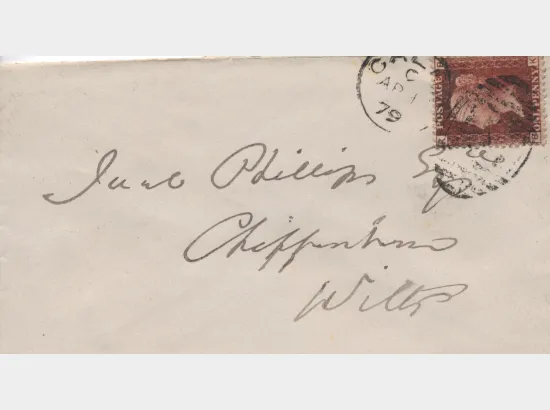 C
AP 1
79
POSTAGE
ONE PENNY
Phillips Esq
Chippenham
Wilts